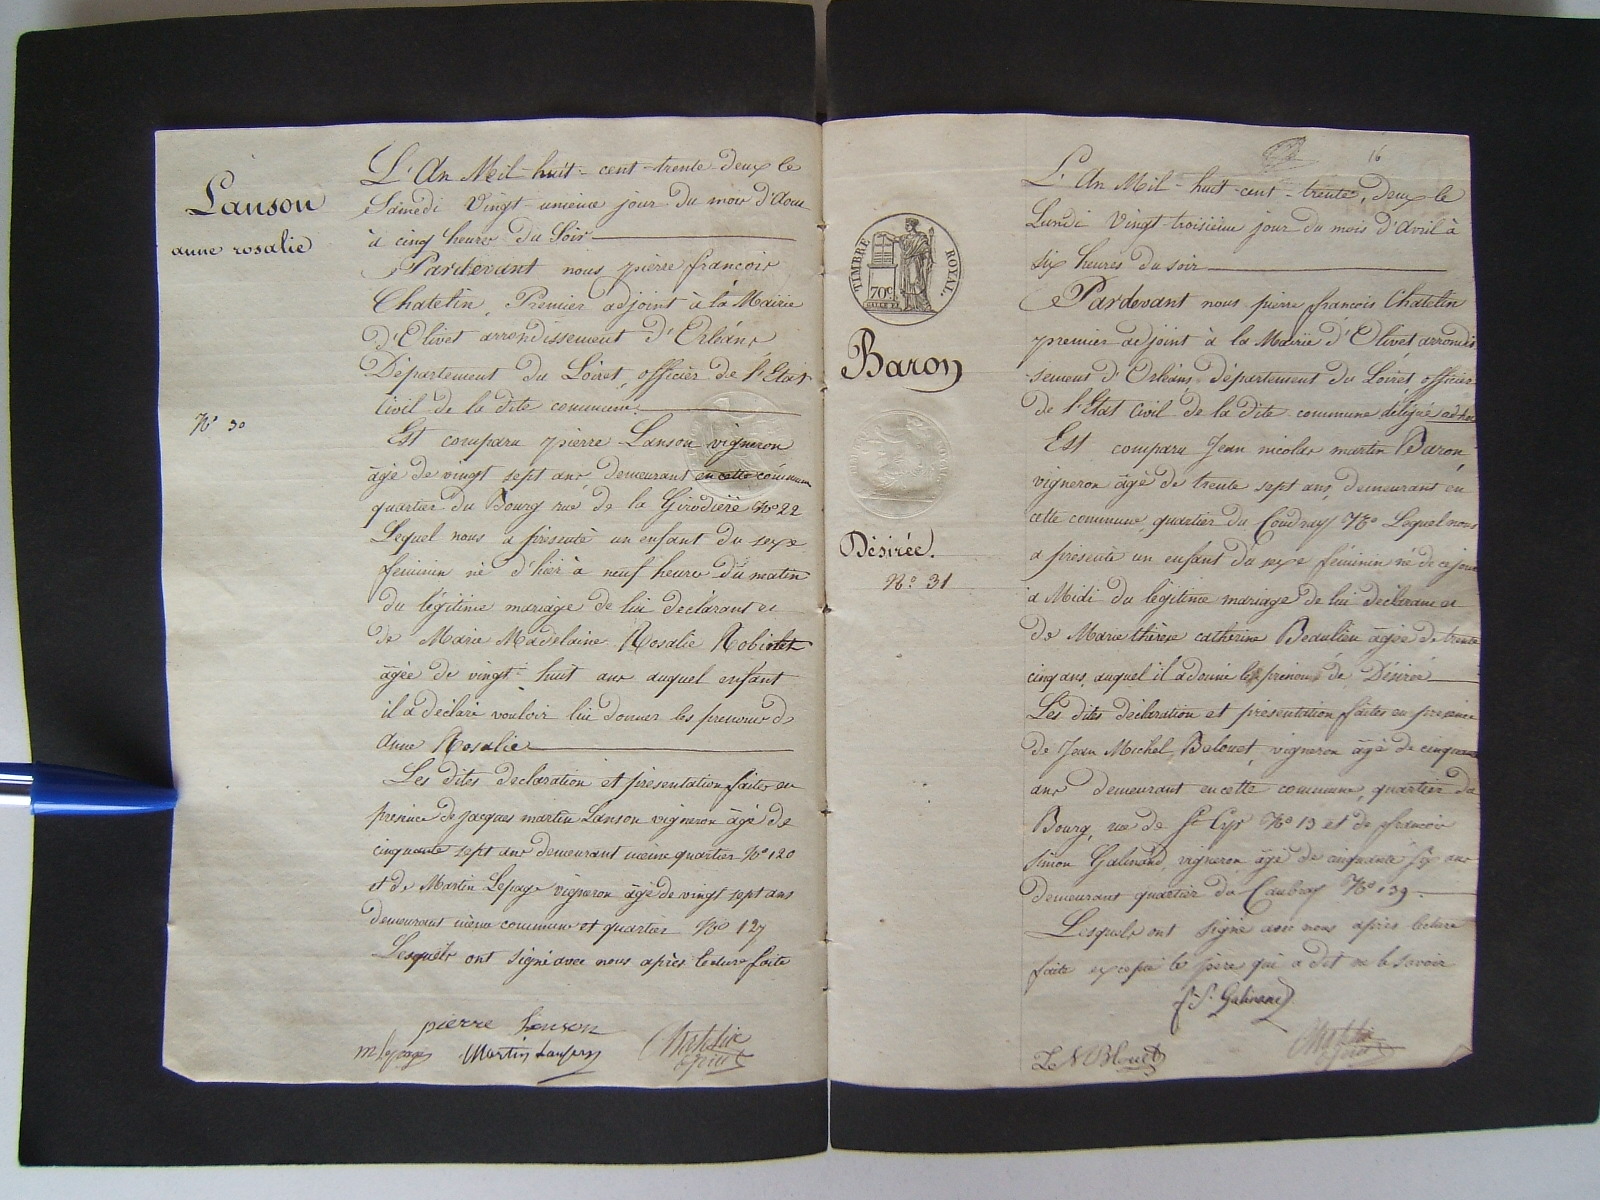 Lanson
anne rosalie
N° 30
L'An Mil huit-cent-trente-deux le
Samedi Vingt-unieme jour du mois d'Avril
à cinq heures du Soir
Pardevant nous pierre francois
Chatelin, Premier adjoint à la Mairie
d'Olivet arrondissement d'Orléans
Département du Loiret, officier de l'Etat
Civil de la dite commune.
Est comparu pierre Lanson vigneron
âgé de vingt sept ans demeurant en cette commune
quartier du Bourg rue de la Girodière N° 22
Lequel nous a présenté un enfant du sexe
féminin né d'hier à neuf heures du matin
du légitime mariage de lui déclarant et
de Marie Madelaine Rosalie Robinet
âgée de vingt-huit ans auquel enfant
il a déclaré vouloir lui donner les prenoms de
Anne Rosalie
Les dites declaration et présentation faites en
présence de Jacques martin Lanson vigneron âgé de
cinquante sept ans demeurant même quartier N° 120
et de Martin Lepage vigneron âgé de vingt sept ans
demeurant même commune et quartier N° 127
Lesquels ont signé avec nous après lecture faite
pierre Lanson
m lepage Martin Lanson Chatelin
adjoint
16
TIMBRE ROYAL.
70c
Baron
Désirée.
N° 31
L'An Mil-huit-cent-trente, deux le
Lundi Vingt-troisième jour du mois d'Avril à
six heures du soir
Pardevant nous pierre françois Chatelin
premier adjoint à la Mairie d'Olivet arrondis
sement d'Orléans département du Loiret officier
de l'Etat Civil de la dite commune délégué ad hoc
Est comparu Jean nicolas martin Baron,
vigneron âgé de trente sept ans, demeurant en
cette commune, quartier du Coudray N° Lequel nous
a présenté un enfant du sexe féminin né de ce jour
à Midi du légitime mariage de lui déclarant et
de Marie thérèse catherine Beaulieu âgée de trente
cinq ans, auquel il a donné le prénom de Désirée
Les dites déclaration et présentation faites en présence
de Jean Michel Belouet, vigneron âgé de cinquante
ans demeurant en cette commune, quartier du
Bourg, rue de St Cyr N° 13 et de françois
simon Galinand, vigneron âgé de cinquante six ans
demeurant quartier du Caubray N° 139.
Lesquels ont signé avec nous après lecture
faite excepté le père qui a dit ne le savoir
f. S. Galinand
J M Blouet Chatelin
adjoint